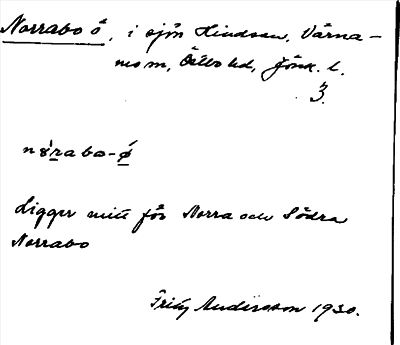 Norrabo ö, i sjön Hindsen, Värna-
mo m, Östbo hd, Jönk. l.
3.
nøraba-ǿ
Ligger mitt för Norra och Södra
Norrabo
Fritz Andersson 1930.